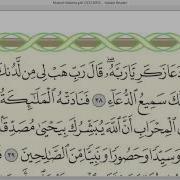 دَعَا زَكَرِيَّا رَبَّهُۥ ۖ قَالَ رَبِّ هَبْ لِى مِن لَّدُنكَ
كَ سَمِيعُ ٱلدُّعَآءِ ٣٨ فَنَادَتْهُ ٱلْمَلَٰٓئِكَةُ
ٱلْمِحْرَابِ أَنَّ ٱللَّهَ يُبَشِّرُكَ بِيَحْيَىٰ مُصَدِّقًۢا
وَسَيِّدًا وَحَصُورًا وَنَبِيًّا مِّنَ ٱلصَّٰلِحِينَ ٣٩